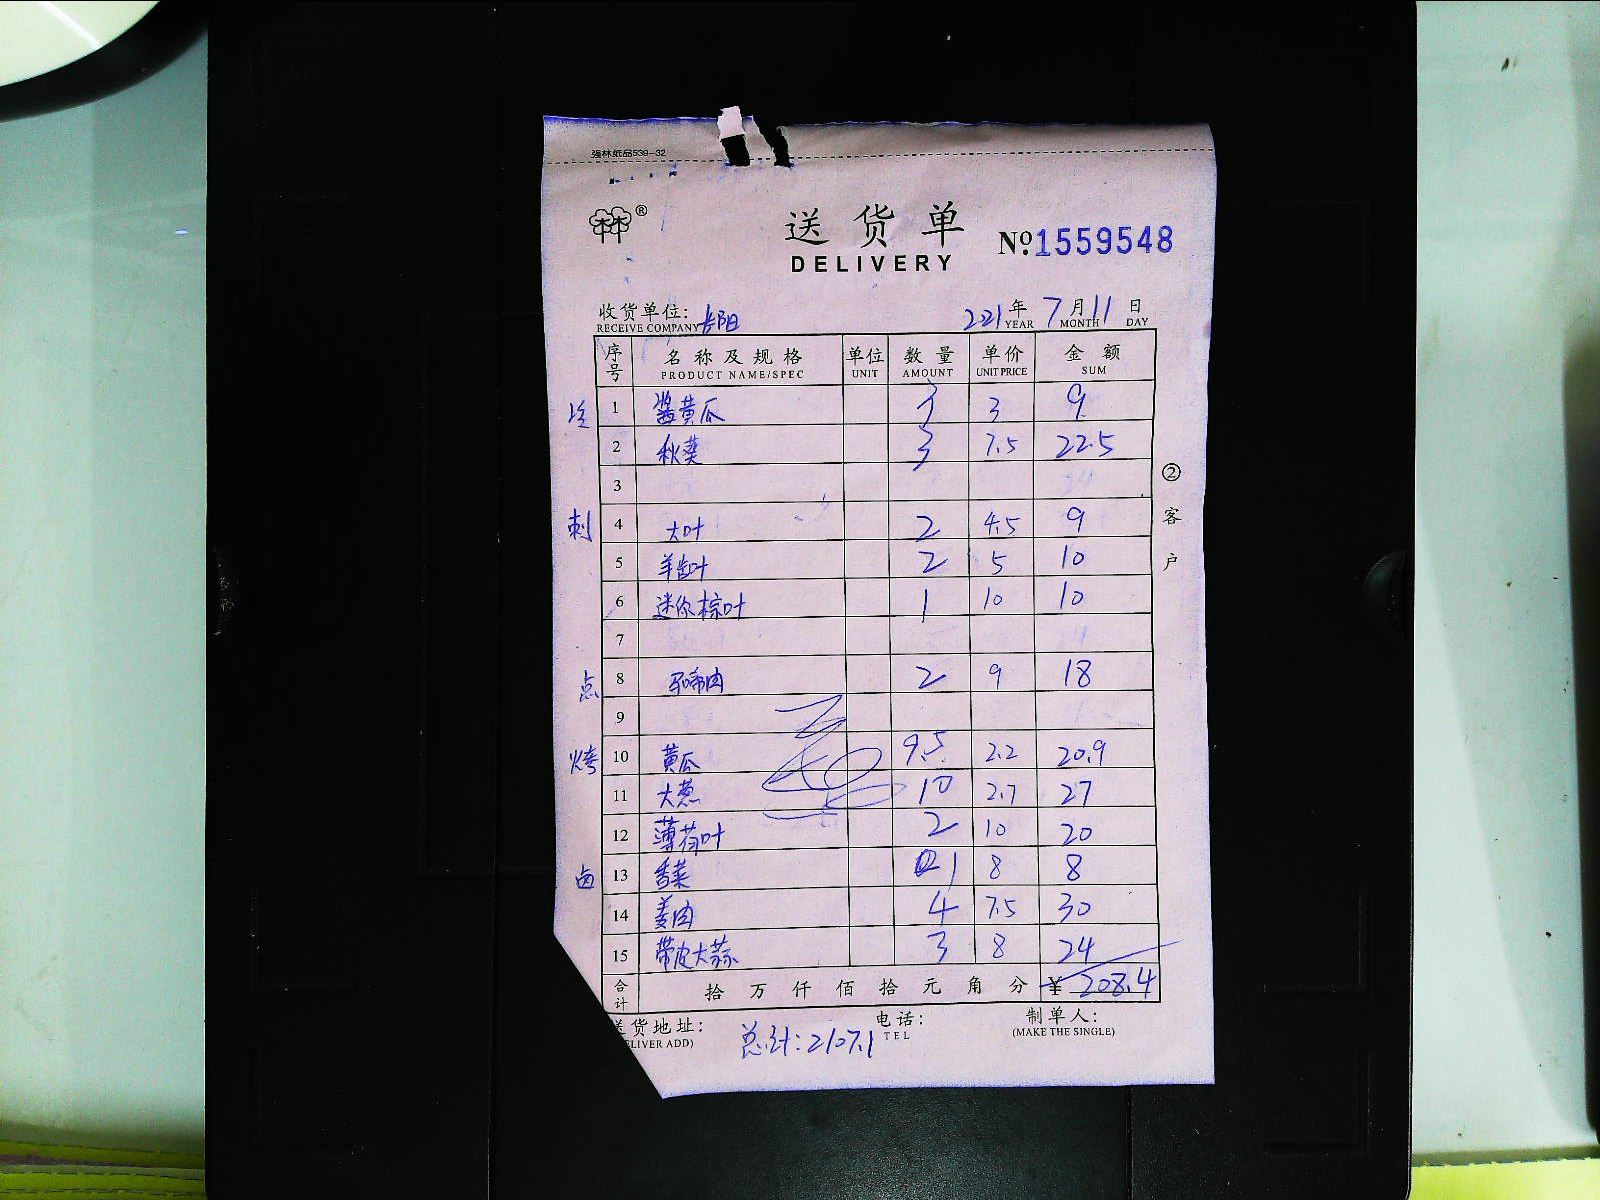 强林纸品539-32
林林®
送货单
DELIVERY
№1559548
收货单位: 长阳
RECEIVE COMPANY
2021年7月11日
YEAR MONTH DAY
序号 名称及规格 单位 数量 单价 金额
PRODUCT NAME/SPEC UNIT AMOUNT UNIT PRICE SUM
1 酱黄瓜 3 3 9
2 秋葵 3 7.5 22.5
3
刺 4 大叶 2 4.5 9
5 羊齿叶 2 5 10
6 迷你棕叶 1 10 10
7
点 8 2 9 18
9
烤 10 黄瓜 9.5 2.2 20.9
11 大葱 10 2.7 27
12 薄荷叶 2 10 20
卤 13 香菜 1 8 8
14 姜肉 4 7.5 30
15 带皮大蒜 3 8 24
合计 拾万仟佰拾元角分 ¥ 208.4
②客户
送货地址: 电话: 制单人:
ELIVER ADD) TEL (MAKE THE SINGLE)
总计:2107.1